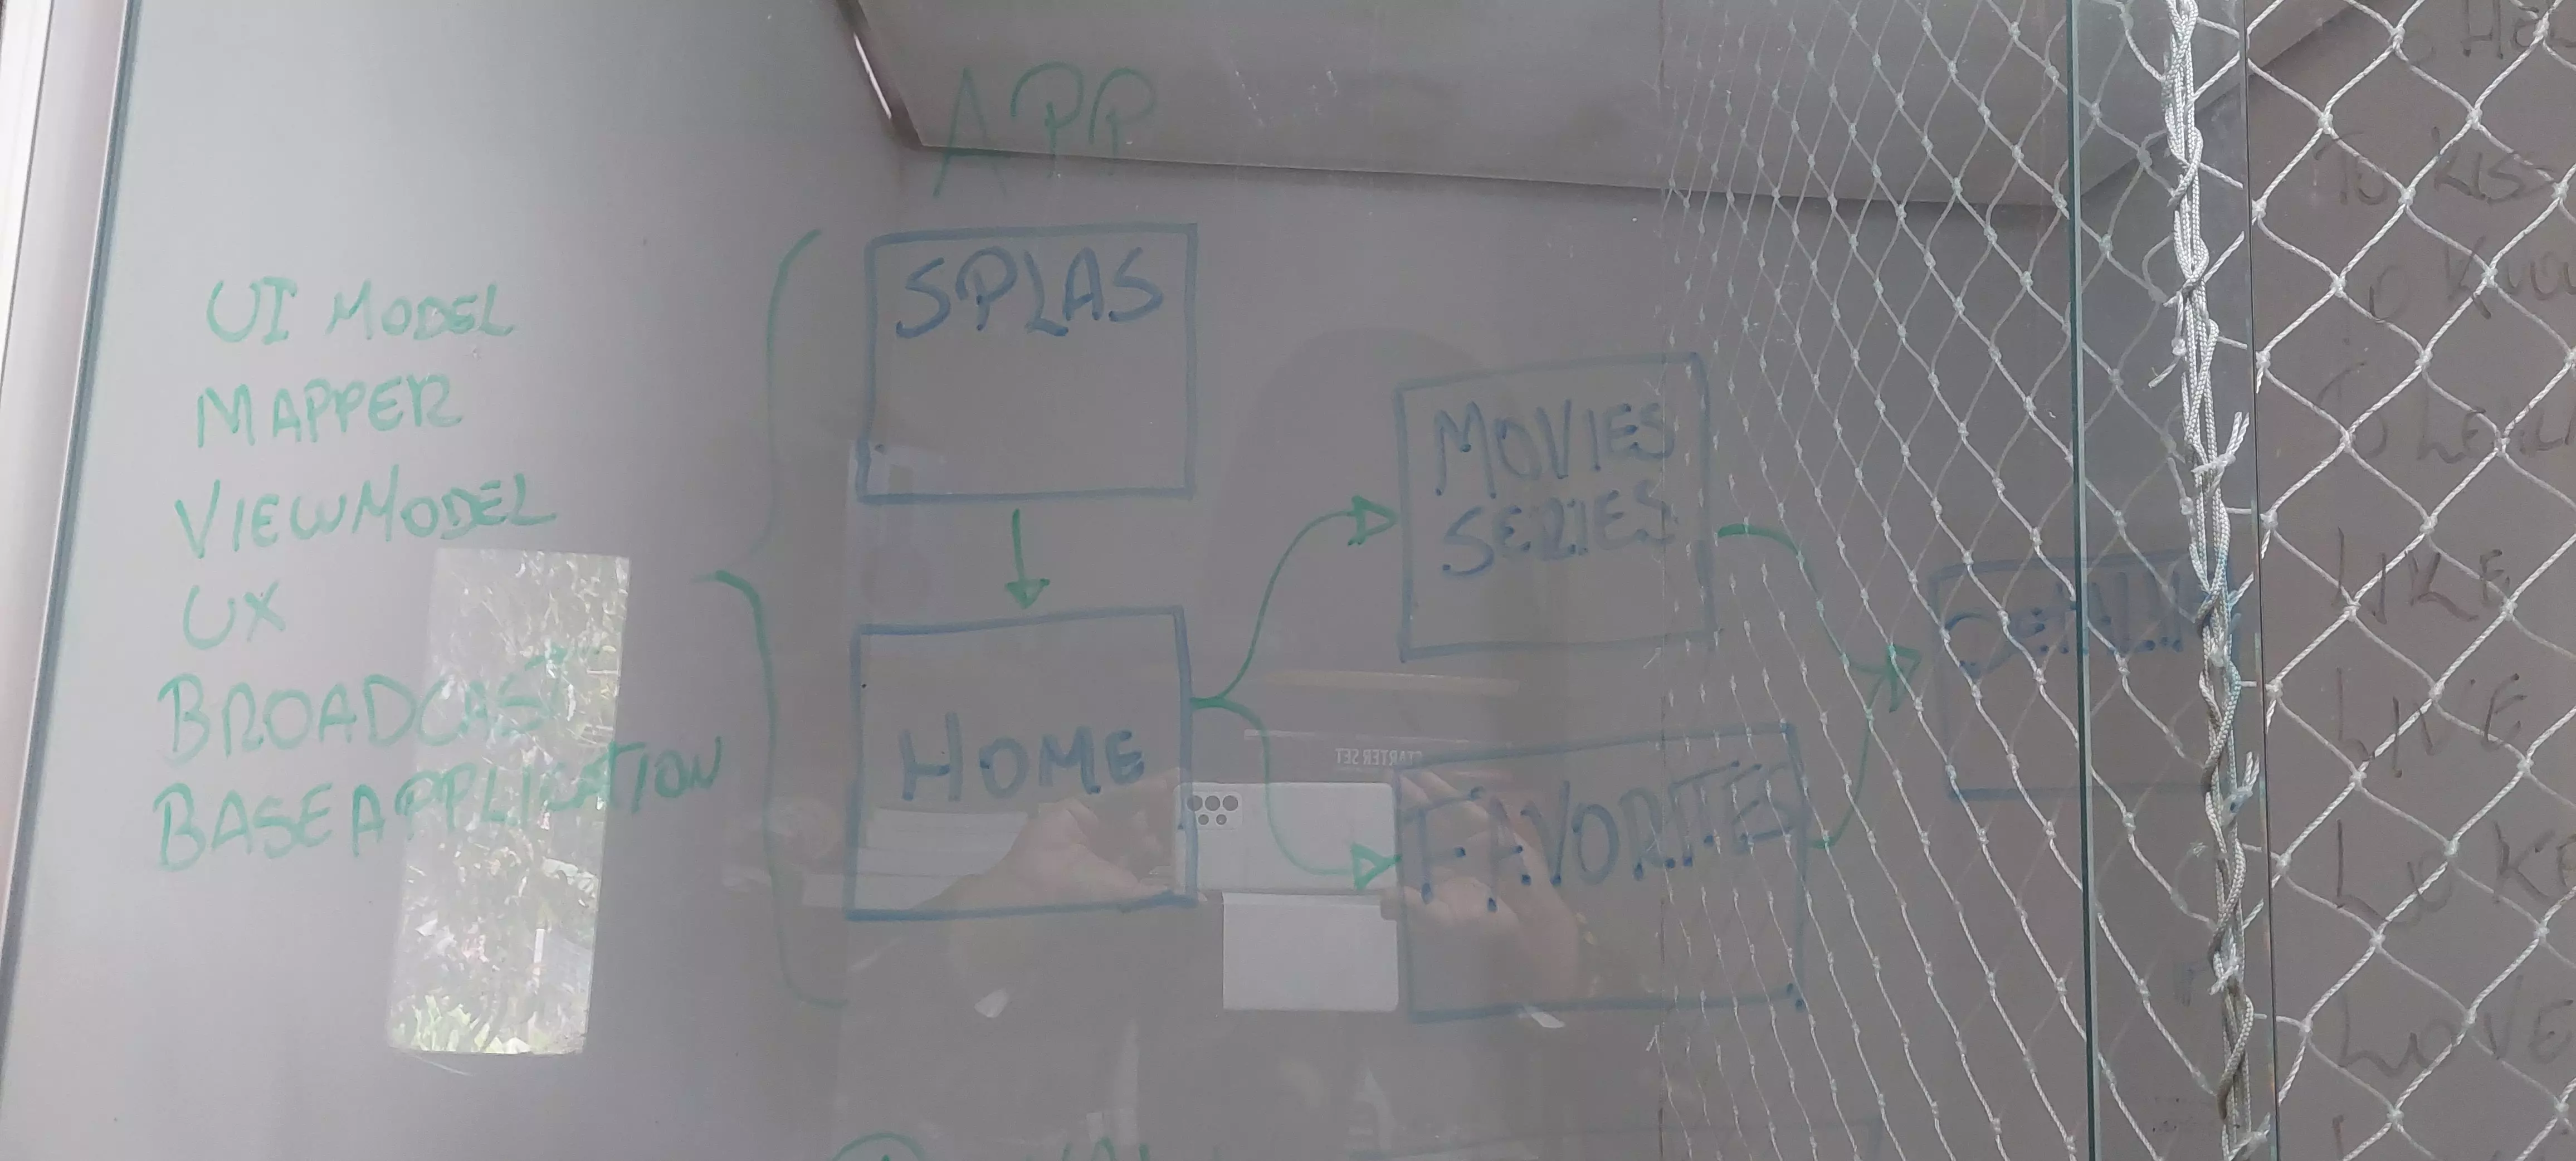 APP
UI MODEL
MAPPER
VIEWMODEL
UX
BROADCAST
BASEAPPLICATION
SPLAS
HOME
MOVIES
SERIES
FAVORITES
STARTER SET
To KISS
To
To
LIKE
LIVE
LOVE